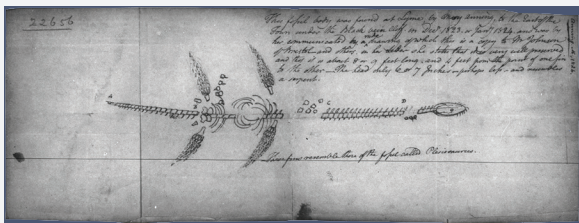 22656
This fossil bones was found at Lyme, by Mary Anning, to the East of the
Town under the Black Ven Cliff in Dec.r 1823, or Jan.y 1824, and was by
her communicated by a drawing of which this is a copy to Dr. Johnson
of Bristol and others, in her letter she states that it is very well preserved
and that it is about 8 or 9 feet long, and 4 feet from the point of one fin
to the other — The head only 6 or 7 Inches perhaps less — and resembles
a serpent.
These fins resemble those of the fossil called Plesiosaurus.